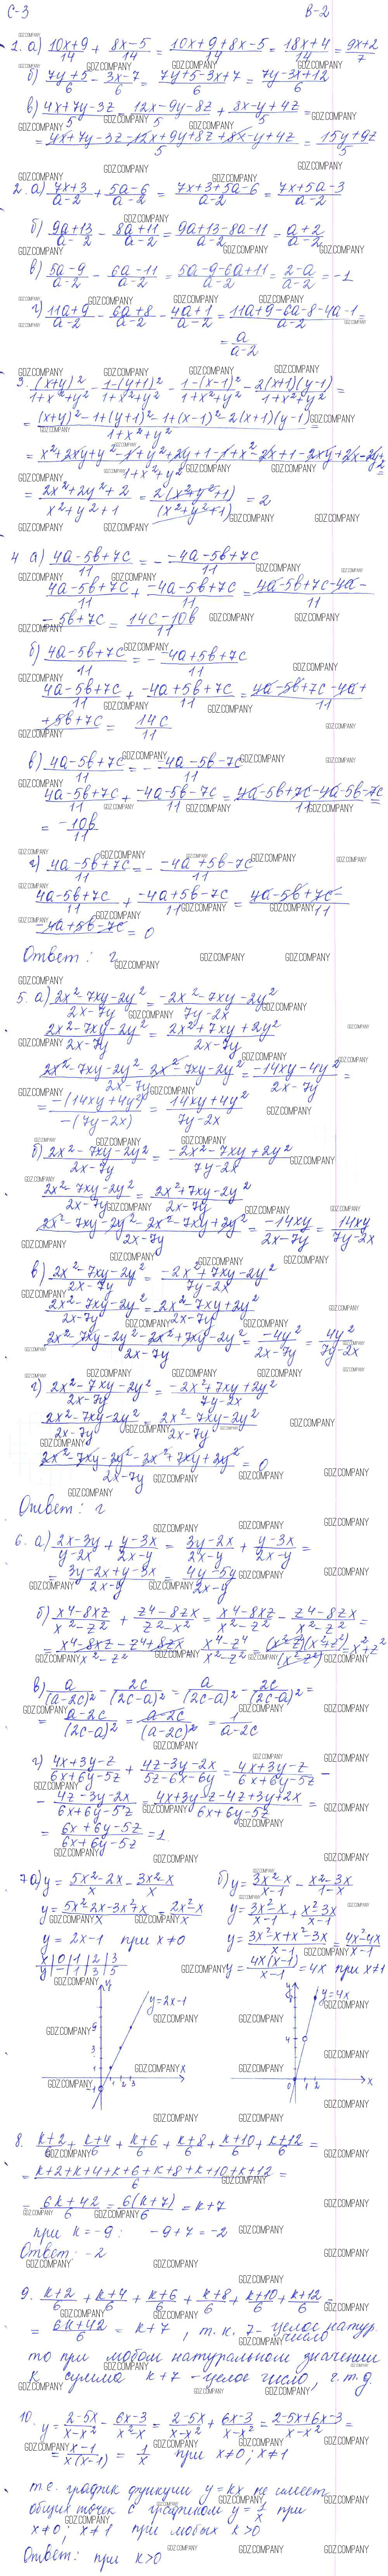 С-3 В-2
1. а) (10x+9)/14 + (8x-5)/14 = (10x+9+8x-5)/14 = (18x+4)/14 = (9x+2)/7
б) (7y+5)/6 - (3x-7)/6 = (7y+5-3x+7)/6 = (7y-3x+12)/6
в) (4x+7y-3z)/5 - (12x-9y-8z)/5 + (8x-y+4z)/5 =
= (4x+7y-3z-12x+9y+8z+8x-y+4z)/5 = (15y+9z)/5
2. а) (7x+3)/(a-2) + (5a-6)/(a-2) = (7x+3+5a-6)/(a-2) = (7x+5a-3)/(a-2)
б) (9a+13)/(a-2) - (8a+11)/(a-2) = (9a+13-8a-11)/(a-2) = (a+2)/(a-2)
в) (5a-9)/(a-2) - (6a-11)/(a-2) = (5a-9-6a+11)/(a-2) = (2-a)/(a-2) = -1
г) (11a+9)/(a-2) - (6a+8)/(a-2) - (4a+1)/(a-2) = (11a+9-6a-8-4a-1)/(a-2) =
= a/(a-2)
3. (x+y)²/(1+x²+y²) - (1-(y+1)²)/(1+x²+y²) - (1-(x-1)²)/(1+x²+y²) - 2(x+1)(y-1)/(1+x²+y²) =
= ((x+y)²-1+(y+1)²-1+(x-1)²-2(x+1)(y-1))/(1+x²+y²) =
= (x²+2xy+y²-1+y²+2y+1-1+x²-2x+1-2xy+2x-2y+2)/(1+x²+y²) =
= (2x²+2y²+2)/(x²+y²+1) = 2(x²+y²+1)/(x²+y²+1) = 2
4. а) (4a-5b+7c)/11 = - (-4a-5b+7c)/11
(4a-5b+7c)/11 + (-4a-5b+7c)/11 = (4a-5b+7c-4a-
-5b+7c)/11 = (14c-10b)/11
б) (4a-5b+7c)/11 = - (-4a+5b+7c)/11
(4a-5b+7c)/11 + (-4a+5b+7c)/11 = (4a-5b+7c-4a+
+5b+7c)/11 = 14c/11
в) (4a-5b+7c)/11 = - (-4a-5b-7c)/11
(4a-5b+7c)/11 + (-4a-5b-7c)/11 = (4a-5b+7c-4a-5b-7c)/11 =
= -10b/11
г) (4a-5b+7c)/11 = - (-4a+5b-7c)/11
(4a-5b+7c)/11 + (-4a+5b-7c)/11 = (4a-5b+7c-
-4a+5b-7c)/11 = 0
Ответ: г.
5. а) (2x²-7xy-2y²)/(2x-7y) = (-2x²-7xy-2y²)/(7y-2x)
(2x²-7xy-2y²)/(2x-7y) = (2x²+7xy+2y²)/(2x-7y)
(2x²-7xy-2y²-2x²-7xy-2y²)/(2x-7y) = (-14xy-4y²)/(2x-7y) =
= -(14xy+4y²)/-(7y-2x) = (14xy+4y²)/(7y-2x)
б) (2x²-7xy-2y²)/(2x-7y) = (-2x²-7xy+2y²)/(7y-2x)
(2x²-7xy-2y²)/(2x-7y) = (2x²+7xy-2y²)/(2x-7y)
(2x²-7xy-2y²-2x²-7xy+2y²)/(2x-7y) = -14xy/(2x-7y) = 14xy/(7y-2x)
в) (2x²-7xy-2y²)/(2x-7y) = (-2x²+7xy-2y²)/(7y-2x)
(2x²-7xy-2y²)/(2x-7y) = (2x²-7xy+2y²)/(2x-7y)
(2x²-7xy-2y²-2x²+7xy-2y²)/(2x-7y) = -4y²/(2x-7y) = 4y²/(7y-2x)
г) (2x²-7xy-2y²)/(2x-7y) = (-2x²+7xy+2y²)/(7y-2x)
(2x²-7xy-2y²)/(2x-7y) = (2x²-7xy-2y²)/(2x-7y)
(2x²-7xy-2y²-2x²+7xy+2y²)/(2x-7y) = 0
Ответ: г
6. а) (2x-3y)/(y-2x) + (y-3x)/(2x-y) = (3y-2x)/(2x-y) + (y-3x)/(2x-y) =
= (3y-2x+y-3x)/(2x-y) = (4y-5y)/(2x-y)
б) (x⁴-8xz)/(x²-z²) + (z⁴-8zx)/(z²-x²) = (x⁴-8xz)/(x²-z²) - (z⁴-8zx)/(x²-z²) =
= (x⁴-8xz-z⁴+8zx)/(x²-z²) = (x⁴-z⁴)/(x²-z²) = (x²-z²)(x²+z²)/(x²-z²) = x²+z²
в) a/(a-2c)² - 2c/(2c-a)² = a/(2c-a)² - 2c/(2c-a)² =
= (a-2c)/(2c-a)² = (a-2c)/(a-2c)² = 1/(a-2c)
г) (4x+3y-z)/(6x+6y-5z) + (4z-3y-2x)/(5z-6x-6y) = (4x+3y-z)/(6x+6y-5z) -
- (4z-3y-2x)/(6x+6y-5z) = (4x+3y-z-4z+3y+2x)/(6x+6y-5z) =
= (6x+6y-5z)/(6x+6y-5z) = 1.
7 а) y = (5x²-2x)/x - (3x²-x)/x б) y = (3x²-x)/(x-1) - (x²-3x)/(1-x)
y = (5x²-2x-3x²+x)/x = (2x²-x)/x y = (3x²-x)/(x-1) + (x²-3x)/(x-1)
y = 2x-1 при x≠0 y = (3x²-x+x²-3x)/(x-1) = (4x²-4x)/(x-1)
x | 0 | 1 | 2 | 3
y | -1 | 1 | 3 | 5 y = 4x(x-1)/(x-1) = 4x при x≠1
y=2x-1 y=4x
8. (k+2)/6 + (k+4)/6 + (k+6)/6 + (k+8)/6 + (k+10)/6 + (k+12)/6 =
= (k+2+k+4+k+6+k+8+k+10+k+12)/6 =
= (6k+42)/6 = 6(k+7)/6 = k+7
при k=-9: -9+7=-2
Ответ: -2
9. (k+2)/6 + (k+4)/6 + (k+6)/6 + (k+8)/6 + (k+10)/6 + (k+12)/6 =
= (6k+42)/6 = k+7, т.к. 7 - целое натур. число
то при любом натуральном значении
k сумма k+7 - целое число, ч.т.д.
10. y = (2-5x)/(x-x²) - (6x-3)/(x²-x) = (2-5x)/(x-x²) + (6x-3)/(x-x²) = (2-5x+6x-3)/(x-x²) =
= (x-1)/(x(x-1)) = 1/x при x≠0; x≠1
т.е. график функции y=kx не имеет
общих точек с графиком y=1/x при
x≠0; x≠1 при любых k>0
Ответ: при k>0
GDZ.COMPANY